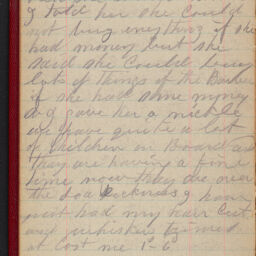 I told her she could
not buy everything if she
had money but she
said she could buy
lots of things of the Barber
if she had some money
so I gave her a nickle
we have quite a lot
of children on Board and
they are having a fine
time now they are over
the sea sickness I have
just had my hair cut
and whiskers trimed
it cost me 1-6